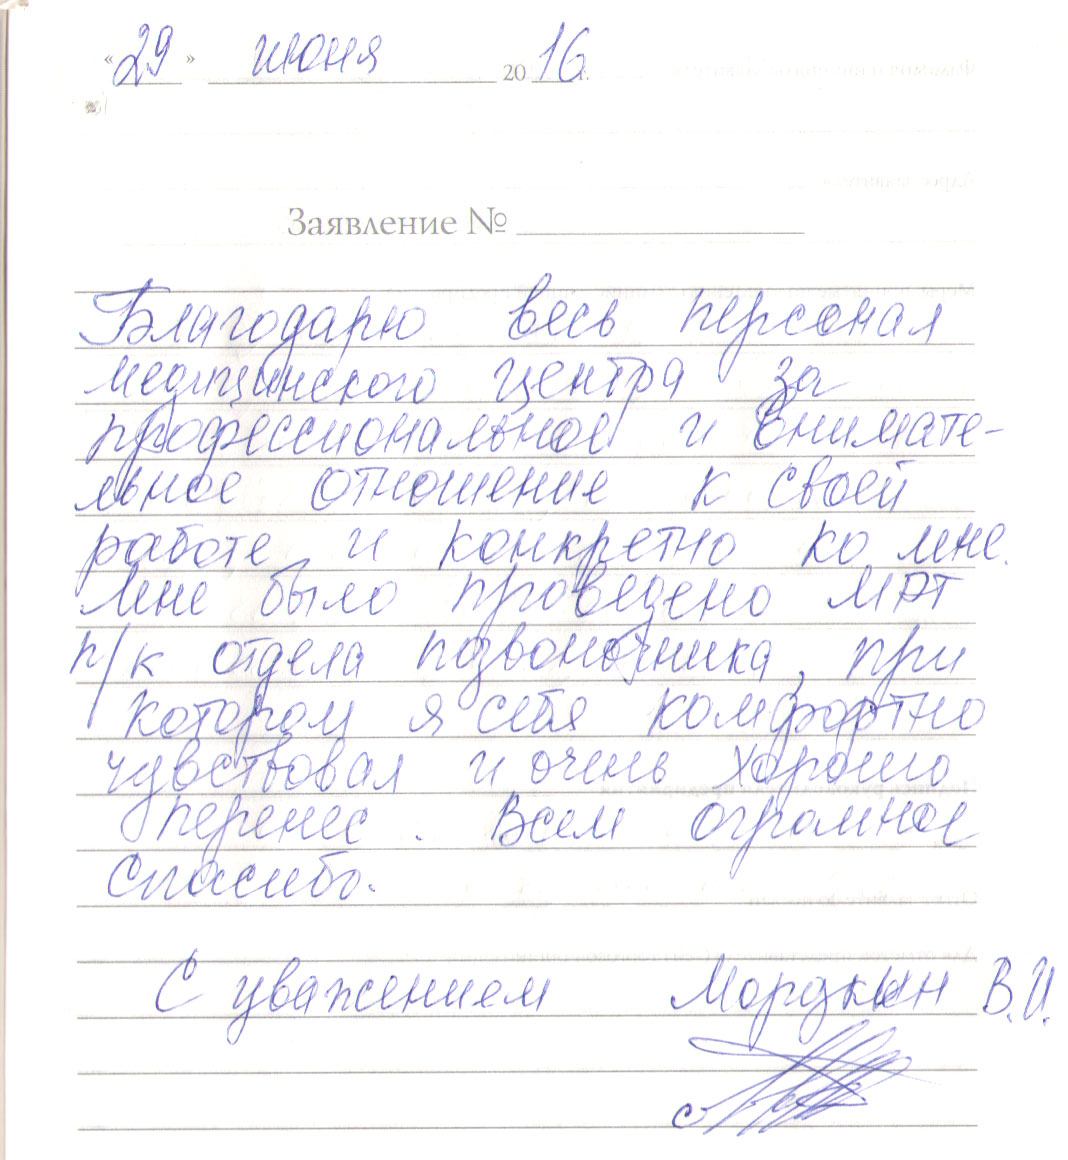 « 29 » июня 20 16 г.
Заявление №
Благодарю весь персонал
медицинского центра за
профессиональное и внимате-
льное отношение к своей
работе и конкретно ко мне.
Мне было проведено МРТ
п/к отдела позвоночника, при
котором я себя комфортно
чувствовал и очень хорошо
перенес. Всем огромное
спасибо.
С уважением Мордкын В.И.